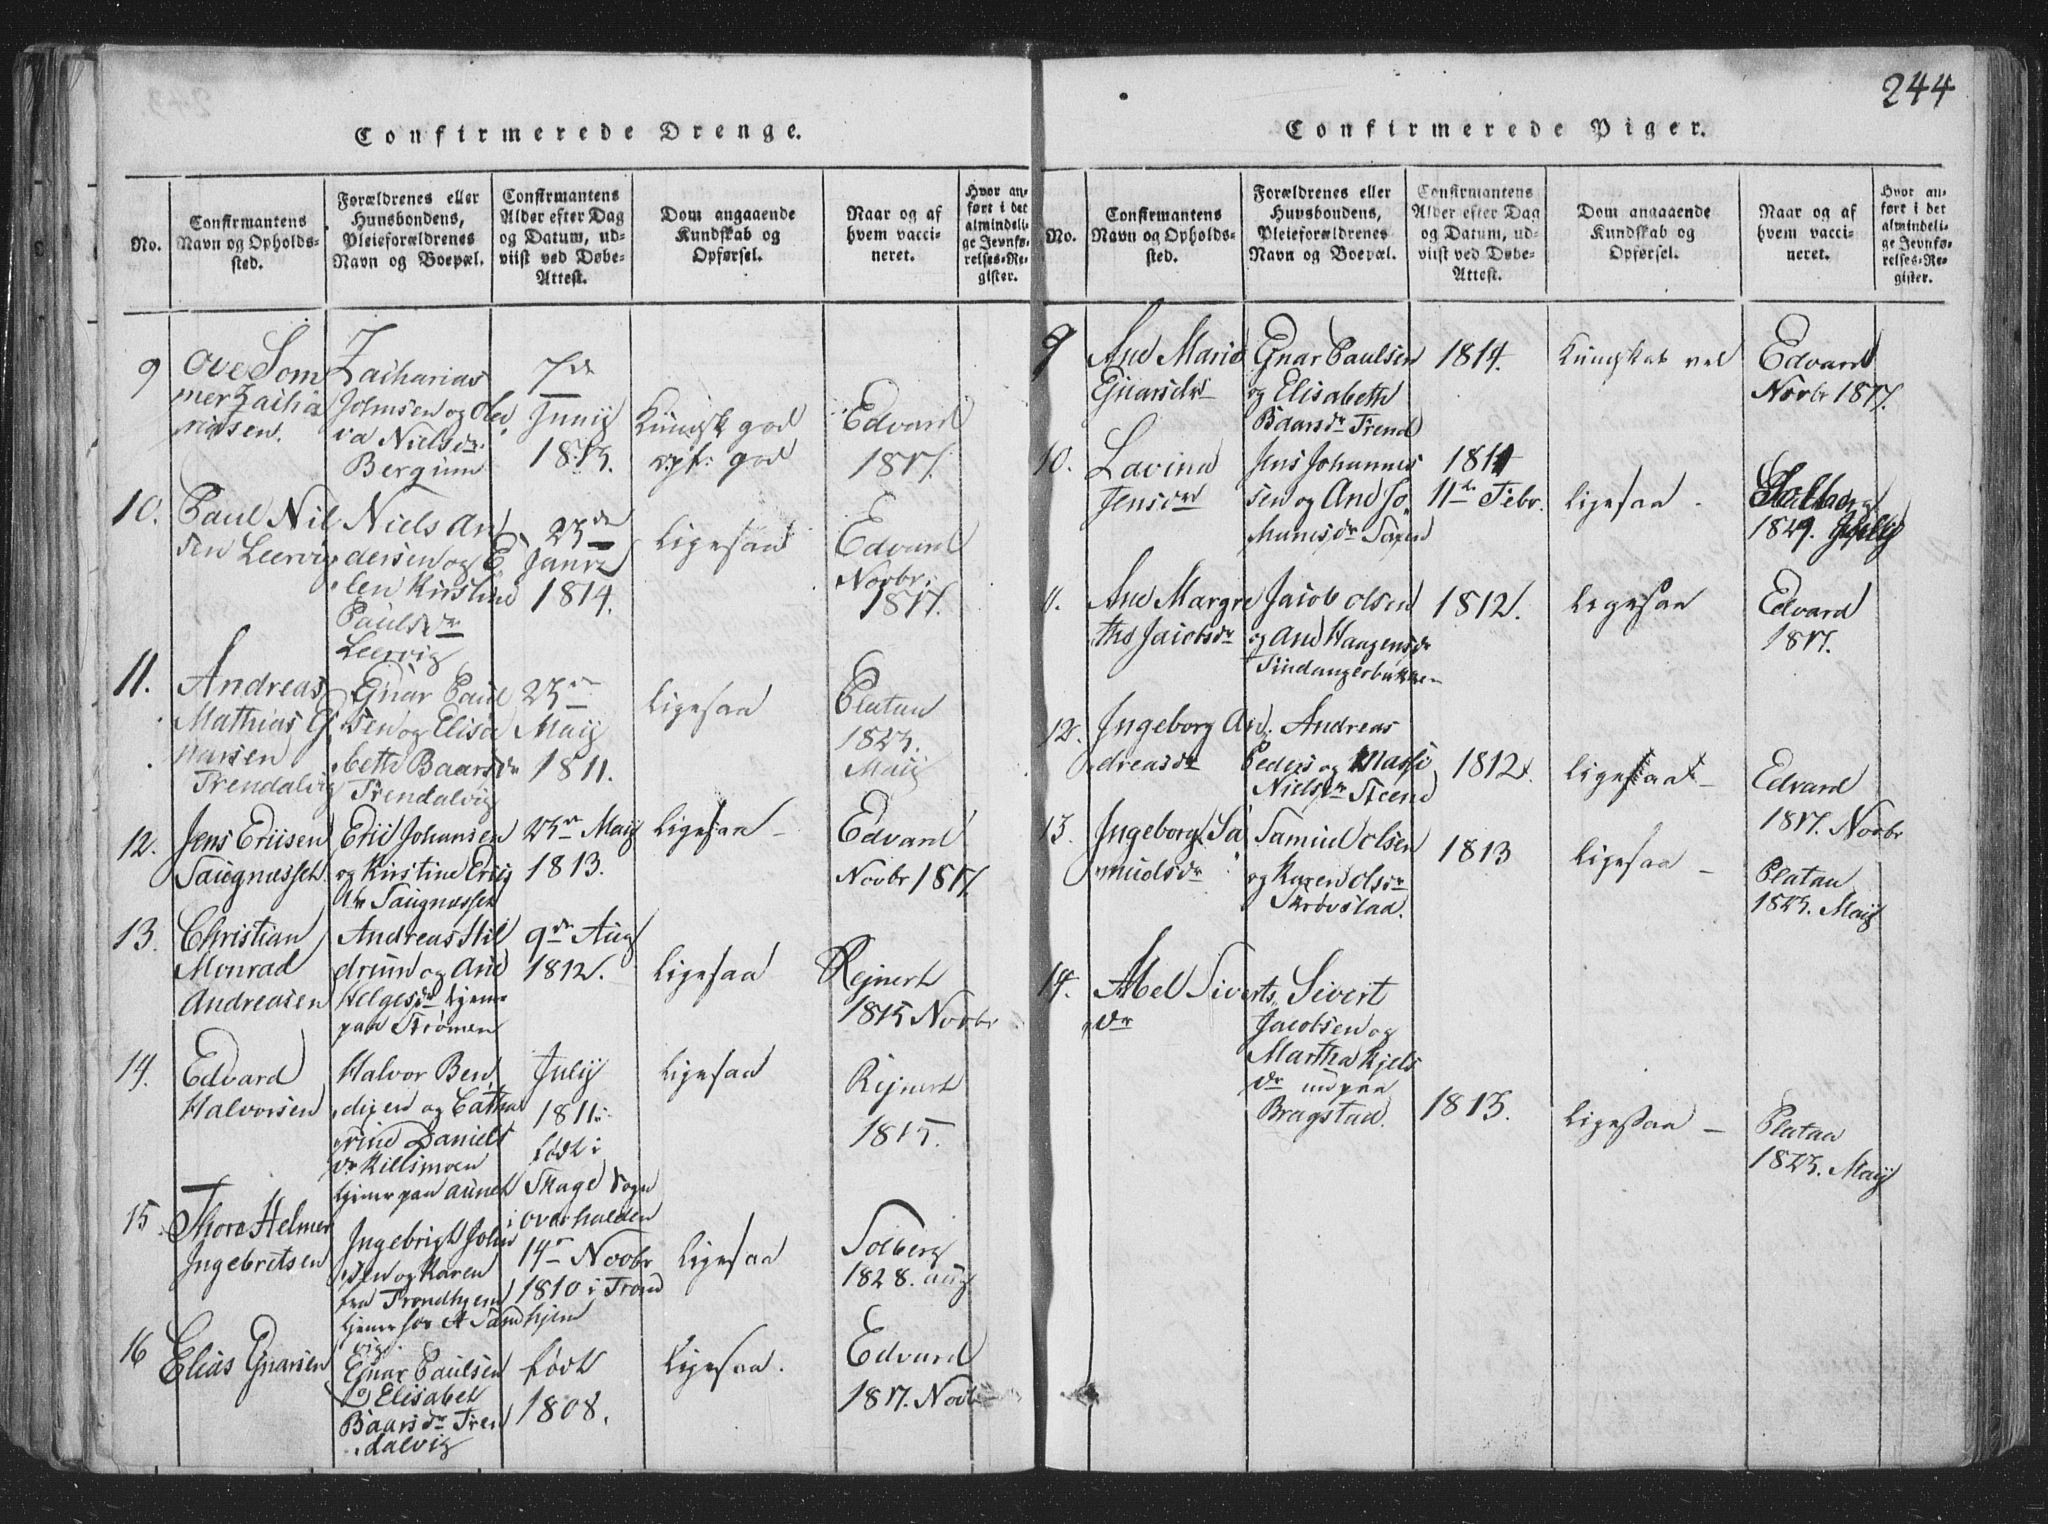 244
Confirmerede Drenge.
No.
Confirmantens
Navn og Opholds-
sted.
Forældrenes eller
Husbondens,
Pleieforældrenes
Navn og Boepæl.
Confirmantens
Alder efter Dag
og Datum, ud-
viist ved Døbe-
Attest.
Dom angaaende
Kundskab og
Opførsel.
Naar og af
hvem vacci-
neret.
Hvor an-
ført i det
almindeli-
ge Jevnfø-
relses-Re-
gister.
9
Ove Som
mer Zacha
riasen.
Zacharias
Johnsen og Ole
va Nielsdr
Bergum
7de
Junij
1813.
Kundsk god
opf: god
Edvard
1817.
10.
Paul Nil
sen Leervig
Niels An
dersen og E
len Kirstine
Paulsdr
Leervig
23de
Janr
1814.
Ligesaa
Edvard
Novbr.
1817.
11.
Andreas
Mathias G
narsen
Trendalvig
Gnar Paul
sen og Elisa
beth Baarsdr
Trendalvig
23de
Maij
1811.
Ligesaa
Platau
1823.
Maij
12.
Jens Ericsen
Saugnæsset.
Eric Johansen
og Kirstine Erics
dr Saugnæsset
23de Maij
1813.
Ligesaa -
Edvard
Novbr 1817.
13.
Christian
Monrad
Andreasen
Andreas Hil
drum og Ane
Helgesdr tjen
paa Strømen
9de Aug
1812.
Ligesaa
Rejnert
1815 Novbr
14.
Edvard
Halvorsen
Halvor Ben
digen og Catha
rine Daniels
dr Killsmoen
tjener paa Aunet
July
1811.
født i
Skage Sogn
i Overhalden
Ligesaa
Rejnert
1815.
15
Thore Helmer
Ingebretsen
Ingebrigt John
sen og Karen
fra Trondhjem
tjener hos A Sand
vig.
14de Novbr
1810 i Trond
hjem
Ligesaa
Solberg
1828. Aug
16
Elias Gnarsen
Gnar Paulsen
og Elisabet
Baarsdr Tren
dalvig
født
1808.
Ligesaa.
Edvard
1817. Novb
Confirmerede Piger.
No.
Confirmantens
Navn og Opholds-
sted.
Forældrenes eller
Huusbondens,
Pleieforældrenes
Navn og Boepæl.
Confirmantens
Alder efter Dag
og Datum, ud-
viist ved Døbe-
Attest.
Dom angaaende
Kundskab og
Opførsel.
Naar og af
hvem vacci-
neret.
Hvor an-
ført i det
almindeli-
ge Jevnfø-
relses-Re-
gister.
9
Ane Marie
Gnarsdr
Gnar Paulsen
og Elisabeth
Baarsdr Trend
1814.
Kundskab vel
Edvard
Novbr 1817.
10.
Lavina
Jensdr
Jens Johannes
sen og Ane Jo
hannesdr
1814
11te Febr.
Ligesaa -
Solberg
1829.
11.
Ane Margre
the Jacobsdr
Jacob Olsen
og Ane Haagensdr
Tindangerbakken
1812.
Ligesaa
Edvard
1817.
12.
Ingeborg An
dreasdr
Andreas
Peders og Massi
Nielsdr Steene
1812.
Ligesaa -
Edvard
1817. Novbr
13.
Ingeborg Sa
muelsdr
Samuel Olsen
og Karen Olsdr
Skrøvstad.
1813
Ligesaa -
Platau
1823. Maij
14.
Abel Siverts
dr
Sivert
Jacobsen og
Martha Kjels
dr ind paa
Bragstad.
1813.
Ligesaa -
Platau
1823. Maij